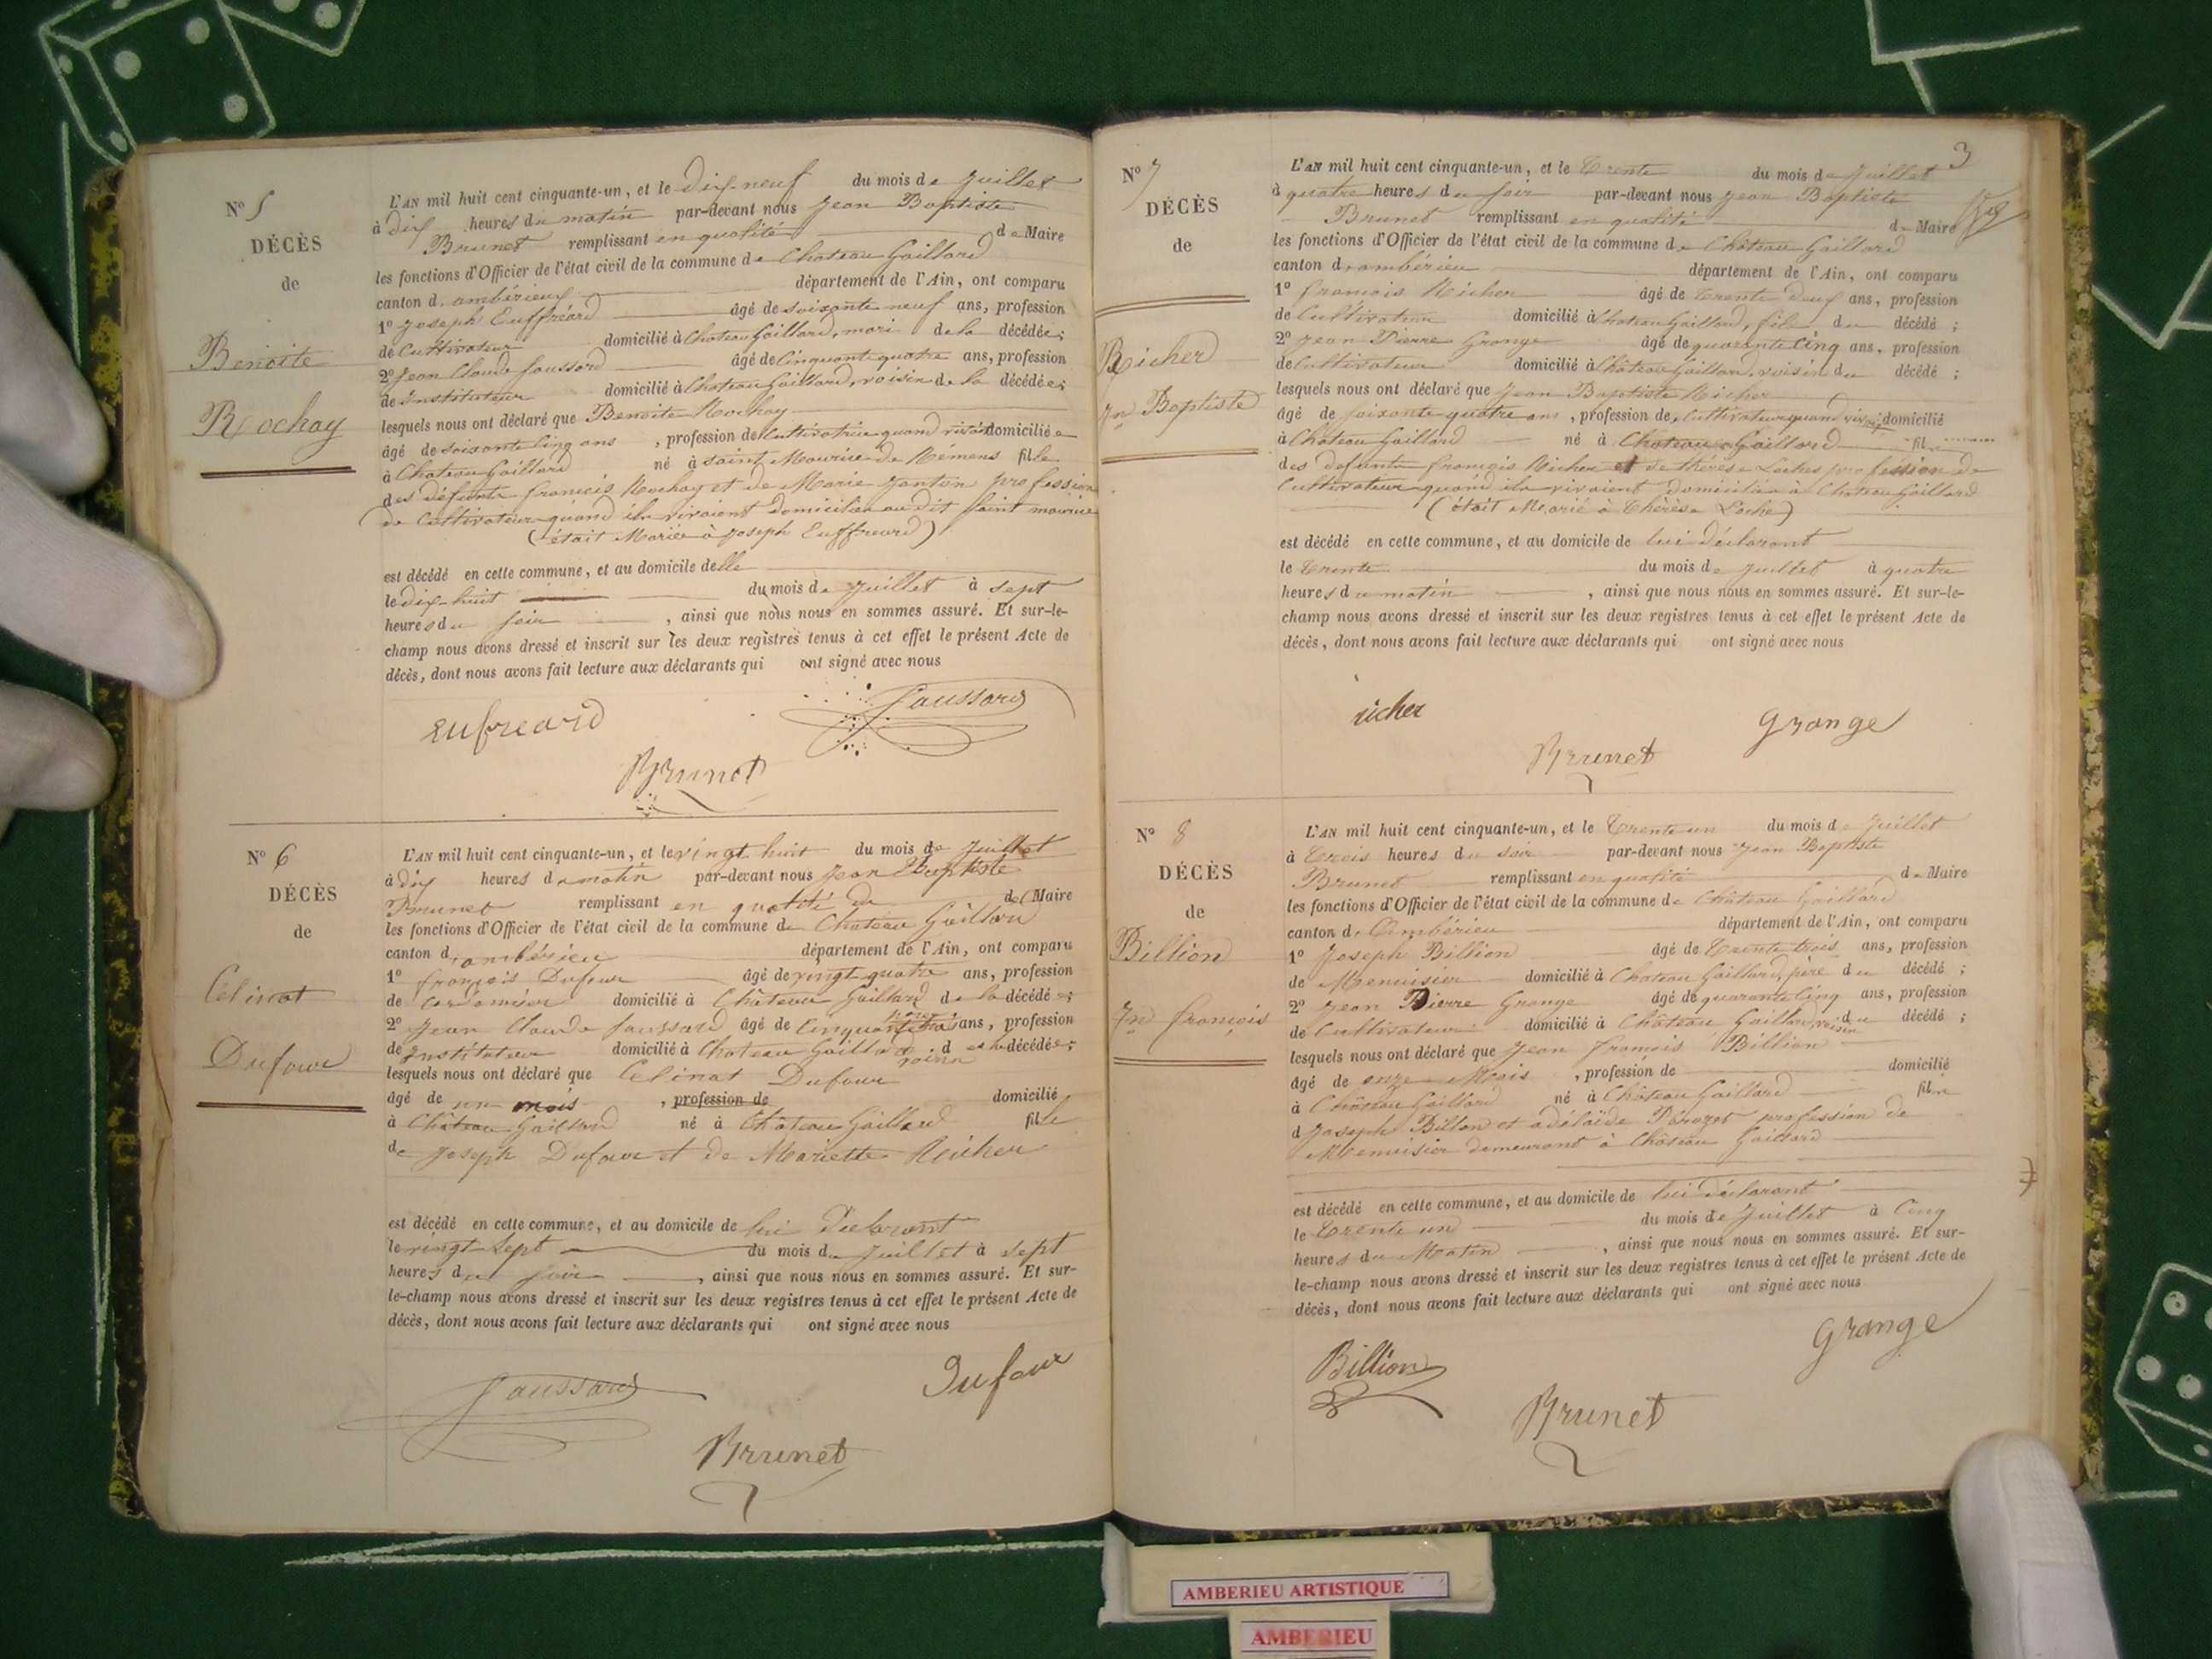 N° 5
DÉCÈS
de
Benoite
Rochay
L'AN mil huit cent cinquante-un, et le dix-neuf du mois de juillet
à dix heures du matin par-devant nous jean Baptiste
Brunet remplissant en qualité de Maire
les fonctions d'Officier de l'état civil de la commune de Chateau Gaillard
canton d'ambérieux département de l'Ain, ont comparu
1° joseph Euffréard âgé de soixante neuf ans, profession
de Cultivateur domicilié à Chateau Gaillard, mari de la décédée;
2° jean Claude faussard âgé de Cinquante quatre ans, profession
de instituteur domicilié à Chateau Gaillard, voisin de la décédée;
lesquels nous ont déclaré que Benoite Rochay
âgé de soixante Cinq ans, profession de Cultivatrice quand vivait domiciliée
à Chateau Gaillard né à saint Maurice de Remens fille
des défunts francois Rochay et de Marie janton profession
de Cultivateur quand ils vivaient domiciliés au dit saint maurice
(était Mariée à joseph Euffreard)
est décédé en cette commune, et au domicile delle
le dix-huit du mois de juillet à sept
heures du soir, ainsi que nous nous en sommes assuré. Et sur-le-
champ nous avons dressé et inscrit sur les deux registres tenus à cet effet le présent Acte de
décès, dont nous avons fait lecture aux déclarants qui ont signé avec nous
Eufreard faussard
Brunet
N° 6
DÉCÈS
de
Celinat
Dufour
L'AN mil huit cent cinquante-un, et le vingt huit du mois de juillet
à dix heures du matin par-devant nous jean Baptiste
Brunet remplissant en qualité de de Maire
les fonctions d'Officier de l'état civil de la commune de Chateau Gaillard
canton d'ambérieu département de l'Ain, ont comparu
1° françois Dufour âgé de vingt quatre ans, profession
de domicilié à Château Gaillard de la décédée;
2° jean Claude faussard âgé de Cinquante ans, profession
de instituteur domicilié à Chateau Gaillard voisin de la décédée;
lesquels nous ont déclaré que Celinat Dufour
âgé de un mois, profession de domicilié
à Château Gaillard né à Chateau Gaillard fille
de joseph Dufour et de Mariette Richer
est décédé en cette commune, et au domicile de lui déclarant
le vingt Sept du mois de juillet à sept
heures du soir, ainsi que nous nous en sommes assuré. Et sur-
le-champ nous avons dressé et inscrit sur les deux registres tenus à cet effet le présent Acte de
décès, dont nous avons fait lecture aux déclarants qui ont signé avec nous
faussard Dufour
Brunet
3
N° 7
DÉCÈS
de
Richer
Jn Baptiste
L'AN mil huit cent cinquante-un, et le trente du mois de juillet
à quatre heures du soir par-devant nous jean Baptiste
Brunet remplissant en qualité de Maire
les fonctions d'Officier de l'état civil de la commune de Château Gaillard
canton d'ambérieu département de l'Ain, ont comparu
1° francois Richer âgé de trente deux ans, profession
de Cultivateur domicilié à Chateau Gaillard, fils du décédé;
2° jean Pierre Grange âgé de quarante Cinq ans, profession
de Cultivateur domicilié à Château Gaillard, voisin du décédé;
lesquels nous ont déclaré que jean Baptiste Richer
âgé de soixante quatre ans, profession de Cultivateur quand vivait domicilié
à Château Gaillard né à Chateau Gaillard fils
des défunts françois Richer et de thérèse Loches profession de
Cultivateur quand ils vivaient domiciliés à Chateau Gaillard
(était Marié à Thérèse Loche)
est décédé en cette commune, et au domicile de lui déclarant
le trente du mois de juillet à quatre
heures du matin, ainsi que nous nous en sommes assuré. Et sur-le-
champ nous avons dressé et inscrit sur les deux registres tenus à cet effet le présent Acte de
décès, dont nous avons fait lecture aux déclarants qui ont signé avec nous
richer Grange
Brunet
N° 8
DÉCÈS
de
Billion
Jn françois
L'AN mil huit cent cinquante-un, et le trente un du mois de juillet
à trois heures du soir par-devant nous jean Baptiste
Brunet remplissant en qualité de Maire
les fonctions d'Officier de l'état civil de la commune de Château Gaillard
canton d'Ambérieu département de l'Ain, ont comparu
1° joseph Billion âgé de trente trois ans, profession
de Menuisier domicilié à Chateau Gaillard, père du décédé;
2° jean Pierre Grange âgé de quarante Cinq ans, profession
de Cultivateur domicilié à Château Gaillard, voisin du décédé;
lesquels nous ont déclaré que jean françois Billion
âgé de onze Mois, profession de domicilié
à Château Gaillard né à Château Gaillard fils
d joseph Billion et adélaïde profession de
Menuisier demeurant à Château Gaillard
est décédé en cette commune, et au domicile de lui déclarant
le trente un du mois de juillet à Cinq
heures du Matin, ainsi que nous nous en sommes assuré. Et sur-
le-champ nous avons dressé et inscrit sur les deux registres tenus à cet effet le présent Acte de
décès, dont nous avons fait lecture aux déclarants qui ont signé avec nous
Billion Grange
Brunet
AMBERIEU ARTISTIQUE
AMBERIEU